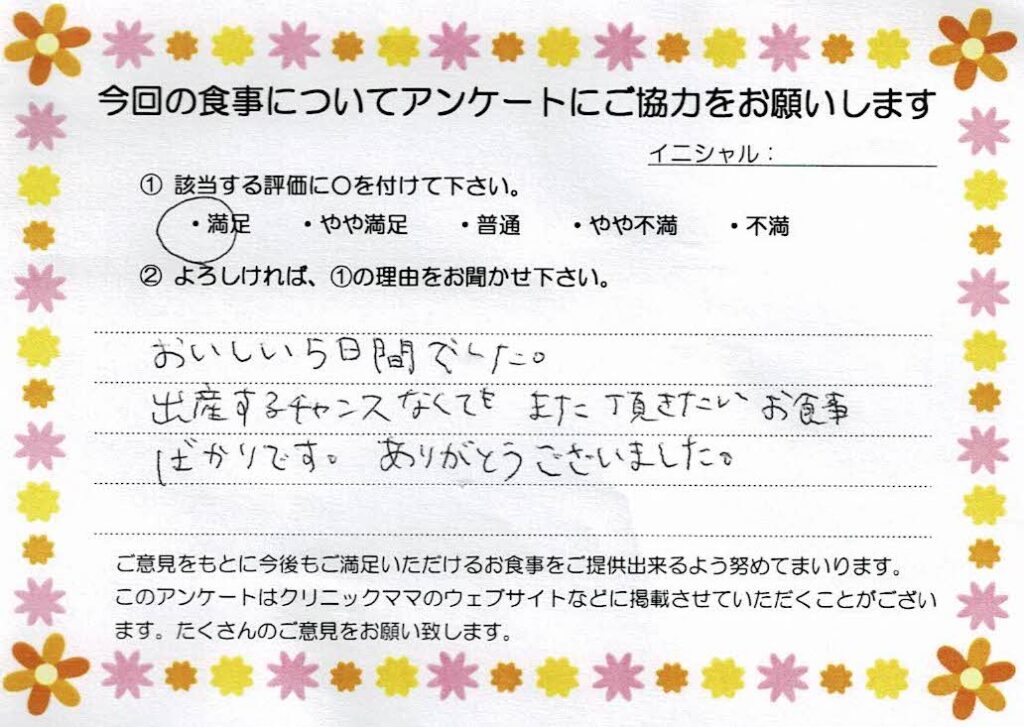 今回の食事についてアンケートにご協力をお願いします
イニシャル：
① 該当する評価に〇を付けて下さい。
・満足 ・やや満足 ・普通 ・やや不満 ・不満
② よろしければ、①の理由をお聞かせ下さい。
おいしい5日間でした。
出産するチャンスなくても また頂きたい お食事
ばかりです。ありがとうございました。
ご意見をもとに今後もご満足いただけるお食事をご提供出来るよう努めてまいります。
このアンケートはクリニックママのウェブサイトなどに掲載させていただくことがござい
ます。たくさんのご意見をお願い致します。